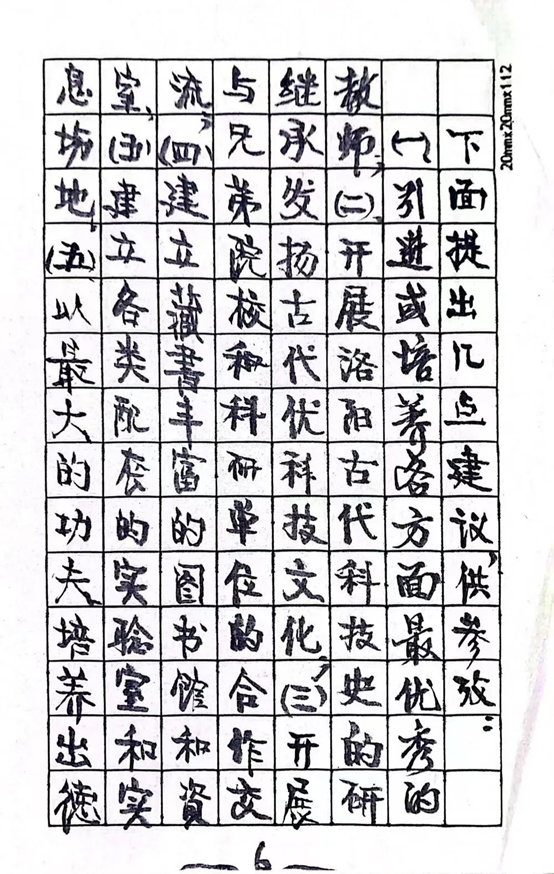 下面提出几点建议，供参孜：
(一)引进或培养各方面最优秀的
教师，(二)开展洛阳古代科技史的研
继承发扬古代优科技文化，(三)开展
与兄弟院校和科研单位的合作交
流，(四)建立藏書丰富的图书馆和資
室，(五)建立各类配套的实验室和实
息场地，(五)以最大的功夫培养出德
6
20mmx20mmx112